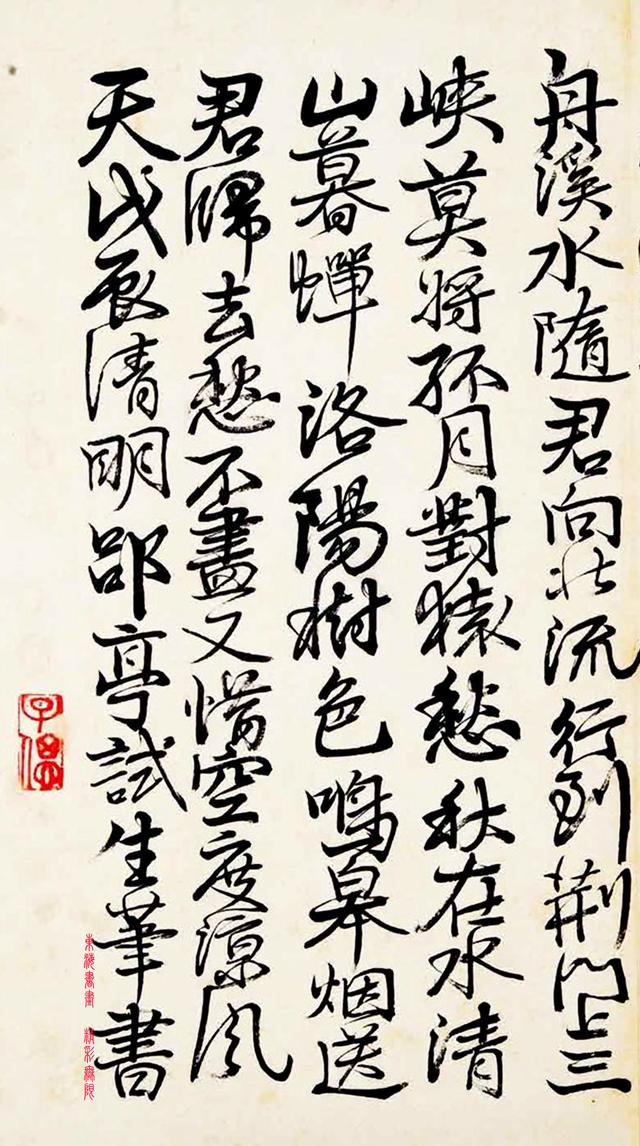 舟溪水隨君向北流行到荊門上三
峽莫將孤月對猿愁秋在水清
山暮蟬洛陽樹色鳴皋烟送
君歸去愁不盡又惜空度涼風
天戊辰清明郘亭試生筆書
子偲
東海書畫 精彩無限